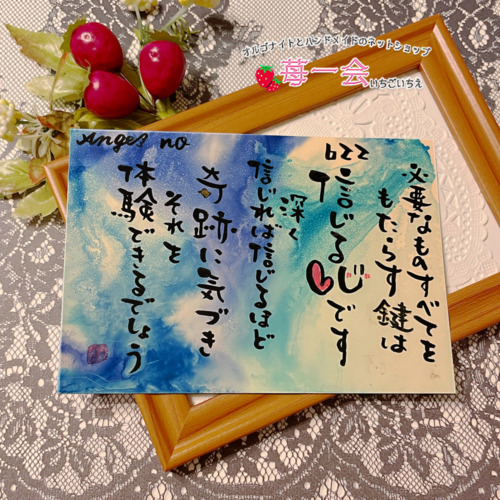 オルゴナイトとハンドメイドのネットショップ
苺一会
いちごいちえ
Angel no
622
必要なものすべてを
もたらす鍵は
信じる心です
深く
信じれば信じるほど
奇跡に気づき
それを
体験できるでしょう